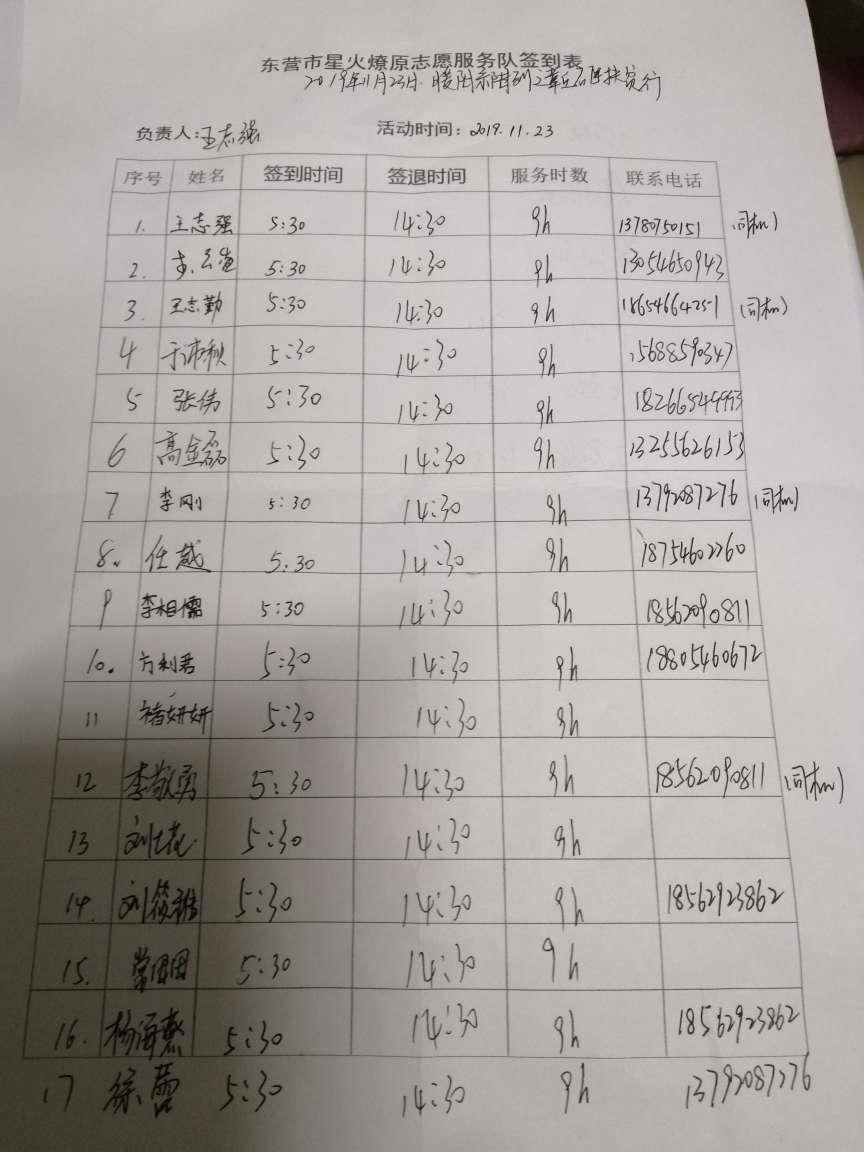 东营市星火燎原志愿服务队签到表
2019年11月23日 暖阳
负责人:王志强 活动时间:2019.11.23
序号 姓名 签到时间 签退时间 服务时数 联系电话
1. 王志强 5:30 14:30 9h 13780750151 (司机)
2. 5:30 14:30 9h 13054650943
3. 王志勤 5:30 14:30 9h 18654664251 (司机)
4 5:30 14:30 9h 15688590347
5 张伟 5:30 14:30 9h 18266549993
6 高金磊 5:30 14:30 9h 13255626153
7 李刚 5:30 14:30 9h 13792087276 (司机)
8. 任越 5.30 14:30 9h 18754602260
9 李相儒 5:30 14:30 9h 18562090811
10. 方利君 5:30 14:30 9h 18805460672
11 褚妍妍 5:30 14:30 9h
12 李敬勇 5:30 14:30 9h 18562090811 (司机)
13 5:30 14:30 9h
14. 刘筱雅 5:30 14:30 9h 18562923862
15. 常团团 5:30 14:30 9h
16. 杨海燕 5:30 14:30 9h 18562923862
17 徐蕾 5:30 14:30 9h 13792087276